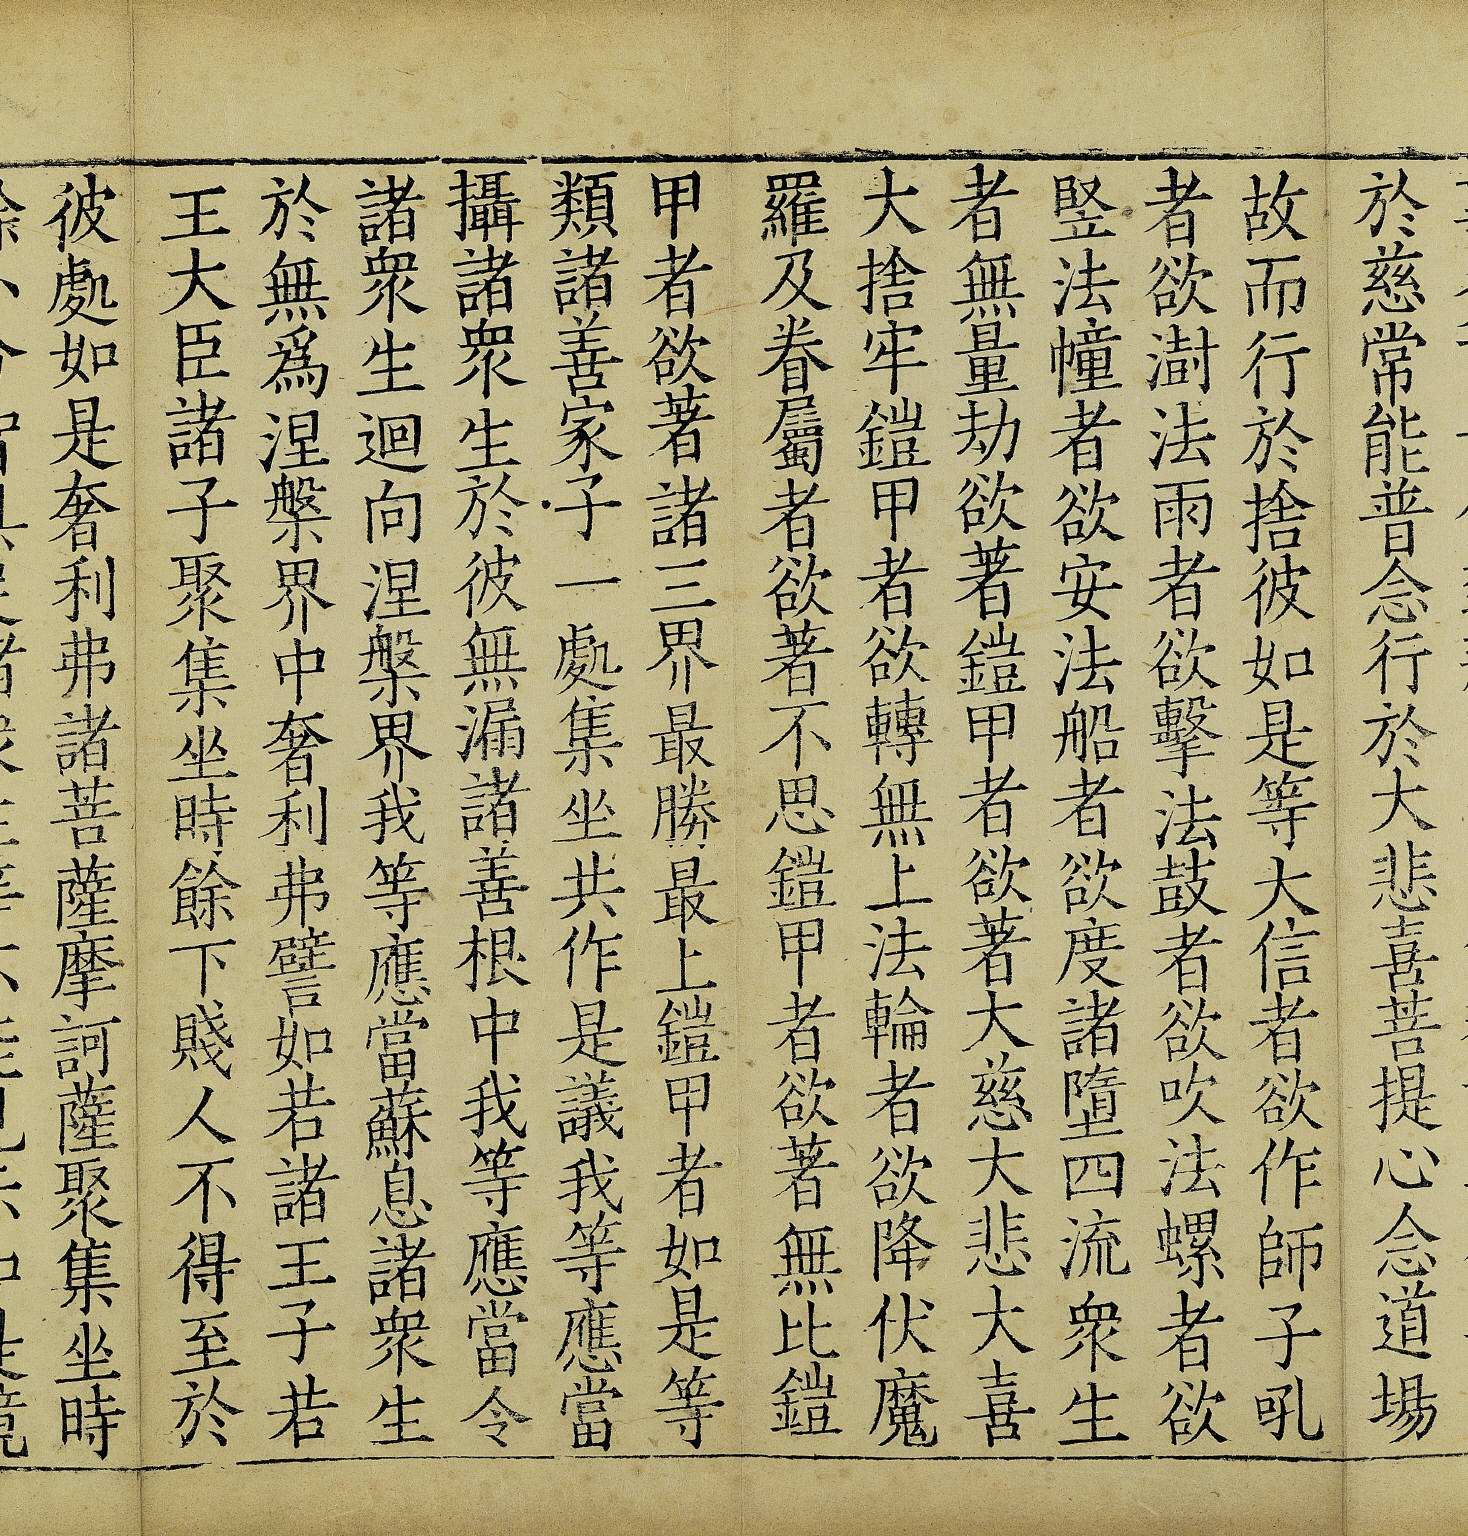 於慈常能普念行於大悲喜菩提心念道場
故而行於捨彼如是等大信者欲作師子吼
者欲澍法雨者欲擊法鼓者欲吹法螺者欲
竪法幢者欲安法船者欲度諸墮四流衆生
者無量劫欲著鎧甲者欲著大慈大悲大喜
大捨牢鎧甲者欲轉無上法輪者欲降伏魔
羅及眷屬者欲著不思鎧甲者欲著無比鎧
甲者欲著諸三界最勝最上鎧甲者如是等
類諸善家子一處集坐共作是議我等應當
攝諸衆生於彼無漏諸善根中我等應當令
諸衆生迴向涅槃界我等應當蘇息諸衆生
於無爲涅槃界中奢利弗譬如若諸王子若
王大臣諸子聚集坐時餘下賤人不得至於
彼處如是奢利弗諸菩薩摩訶薩聚集坐時